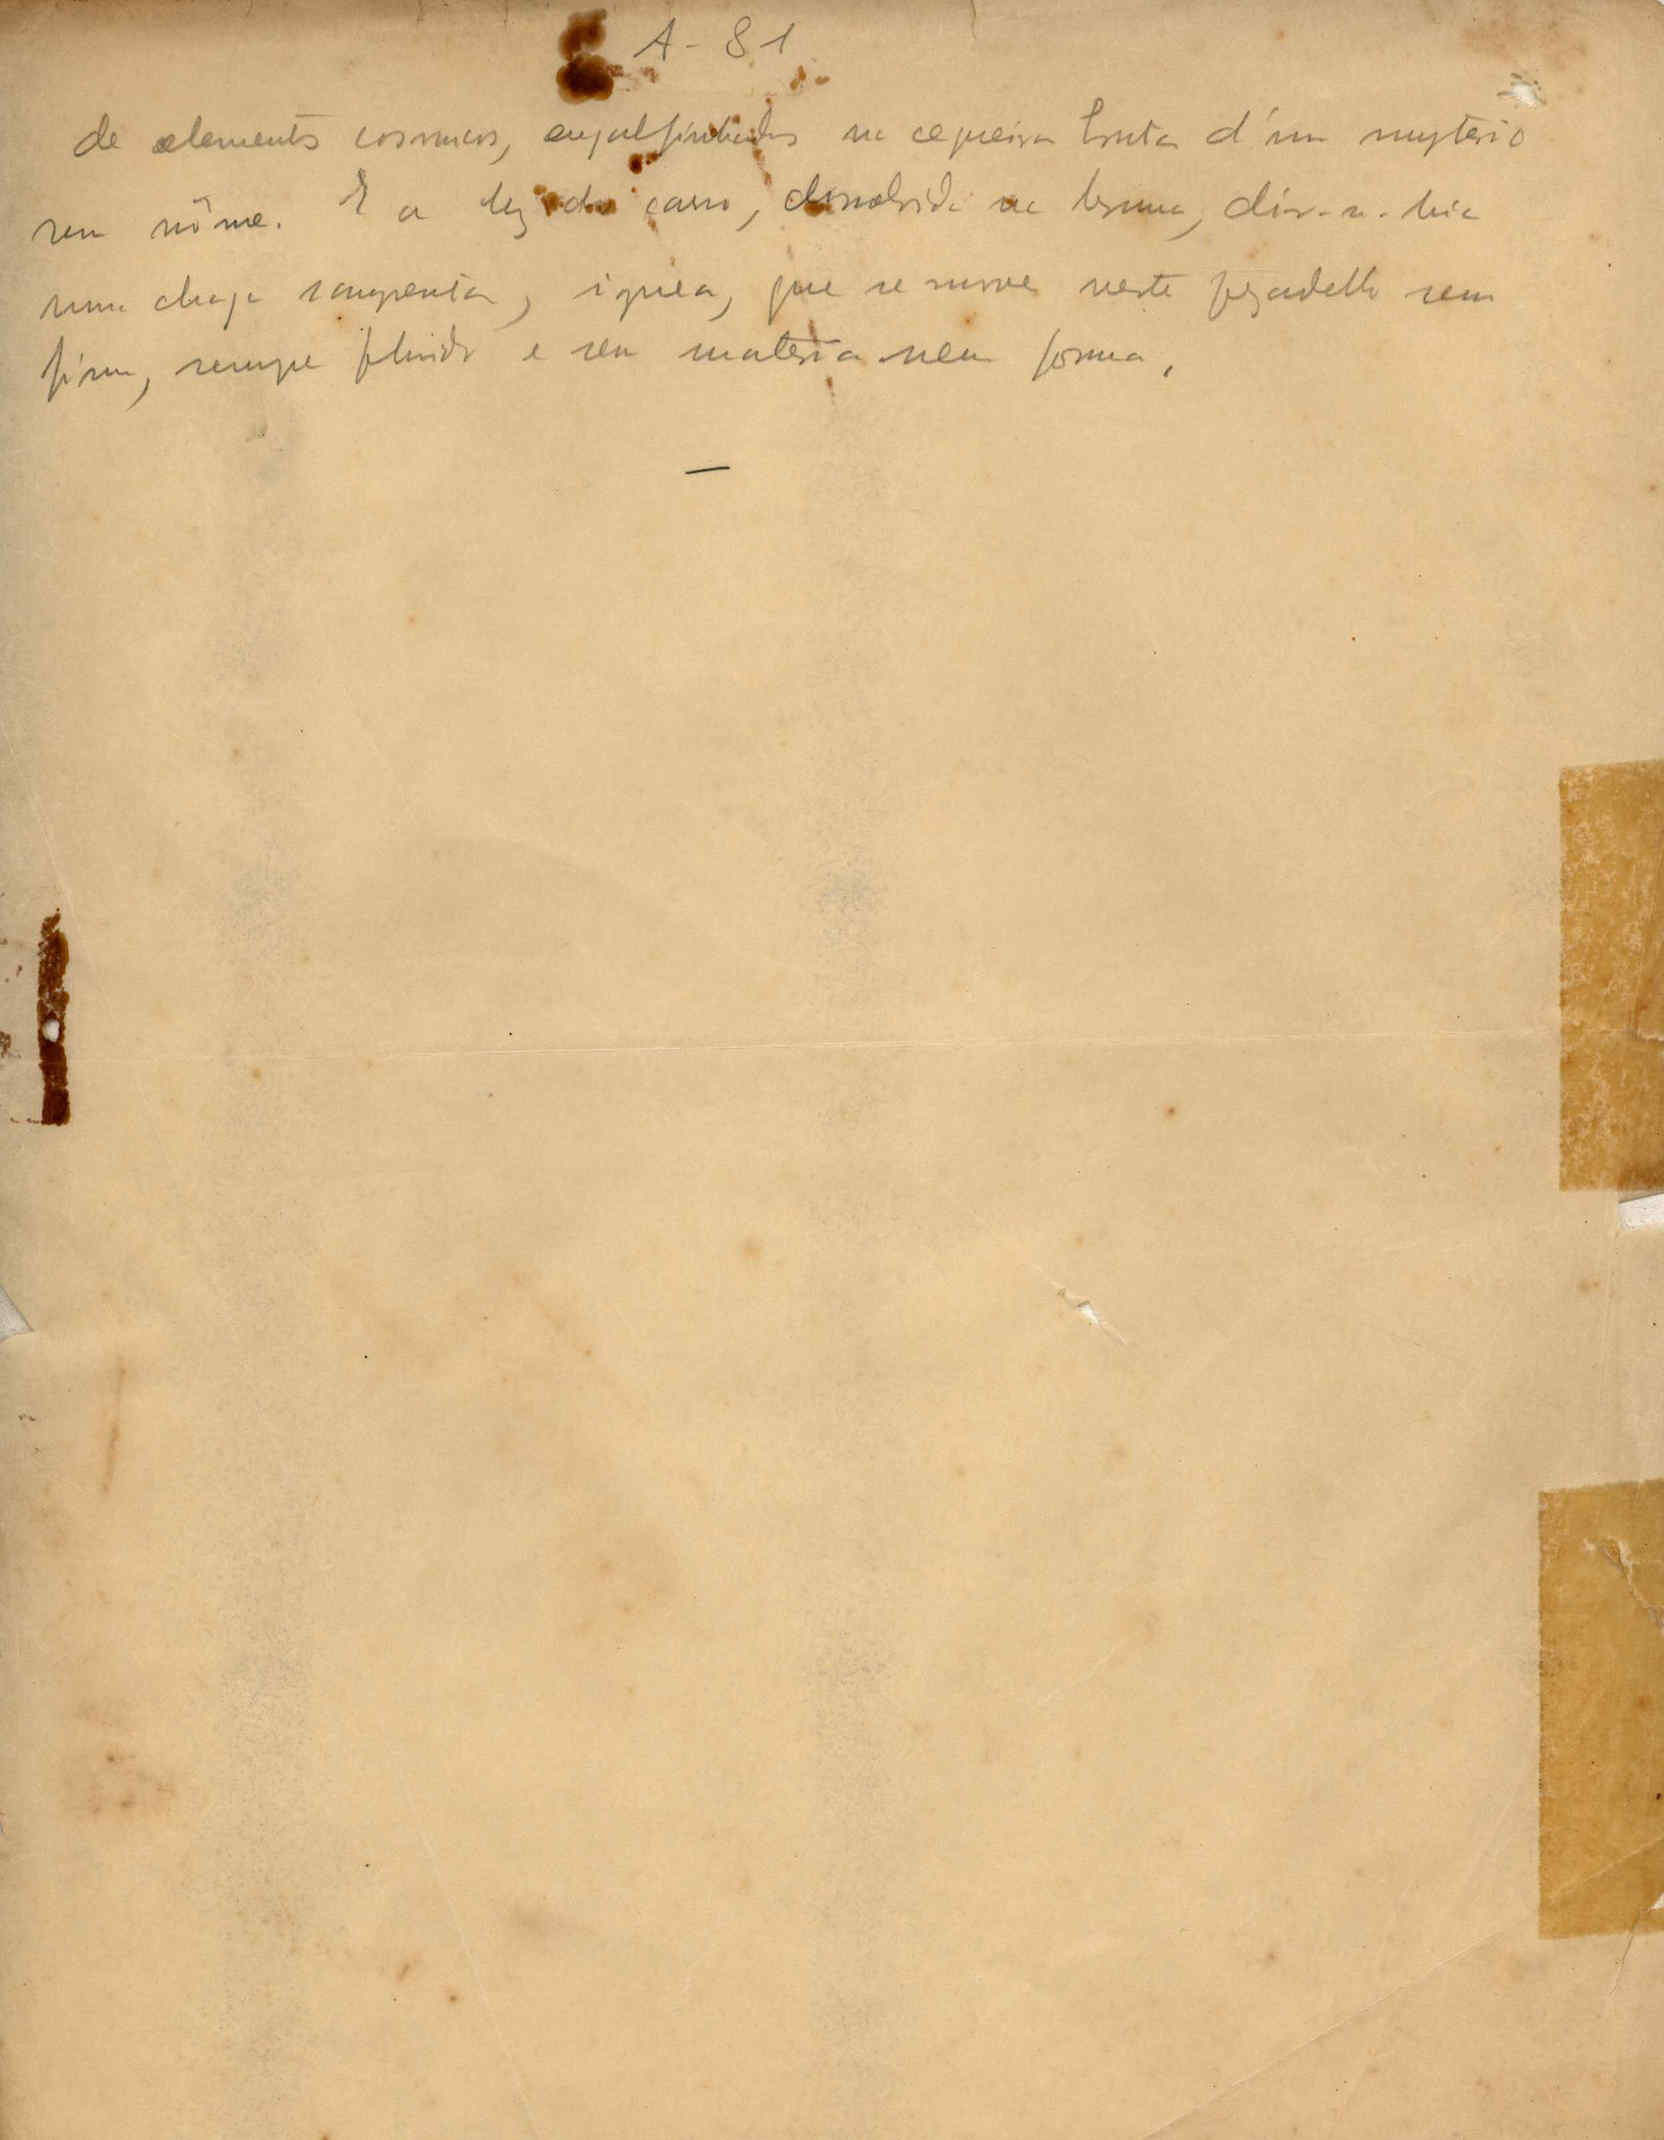 A-81
de elementos cosmicos, engalfinhados na cegueira bruta d'um mysterio
sem nôme. E a luz do carro, dissolvida na bruma, dir-se-hia
uma chaga sangrenta, ignea, que se move neste pezadello sem
fim, sempre fluido e sem materia nem forma.
—